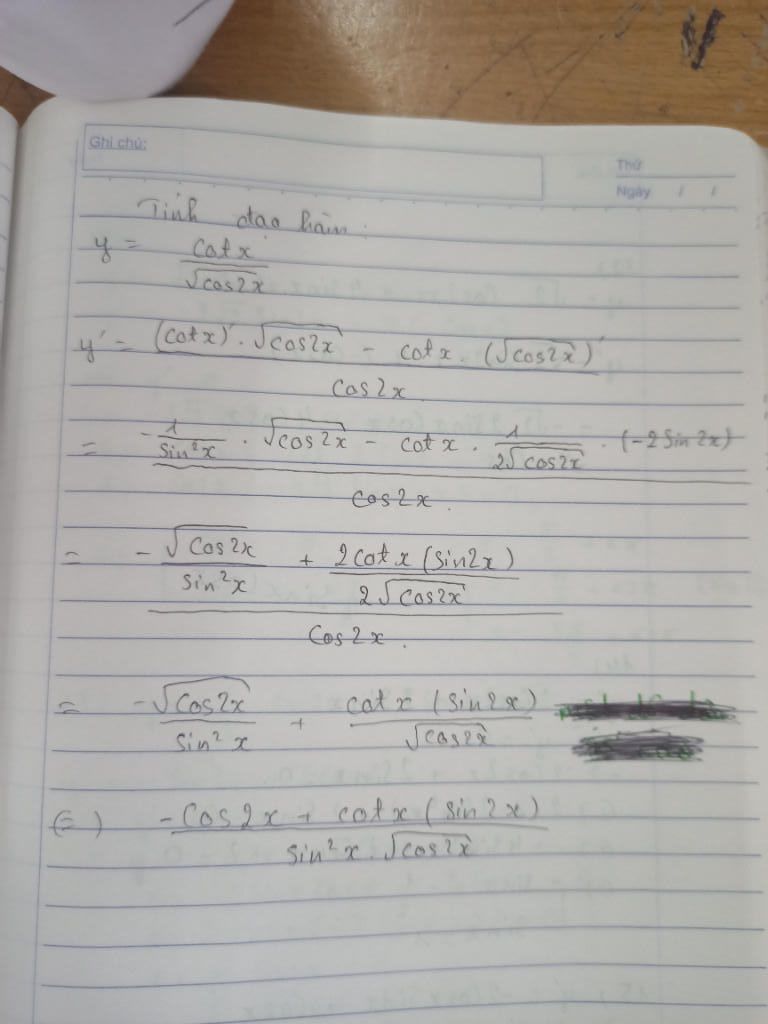 Ghi chú:
Thứ
Ngày / /
Tính đạo hàm:
y = cotx / √cos2x
y' = ((cotx)' . √cos2x - cotx . (√cos2x)') / cos2x
= (-1/sin²x . √cos2x - cotx . 1/(2√cos2x) . (-2sin2x)) / cos2x.
= (-√cos2x/sin²x + 2cotx(sin2x)/(2√cos2x)) / cos2x.
= -√cos2x/sin²x + cotx(sin2x)/√cos2x
(=) (-cos2x + cotx(sin2x)) / (sin²x . √cos2x)